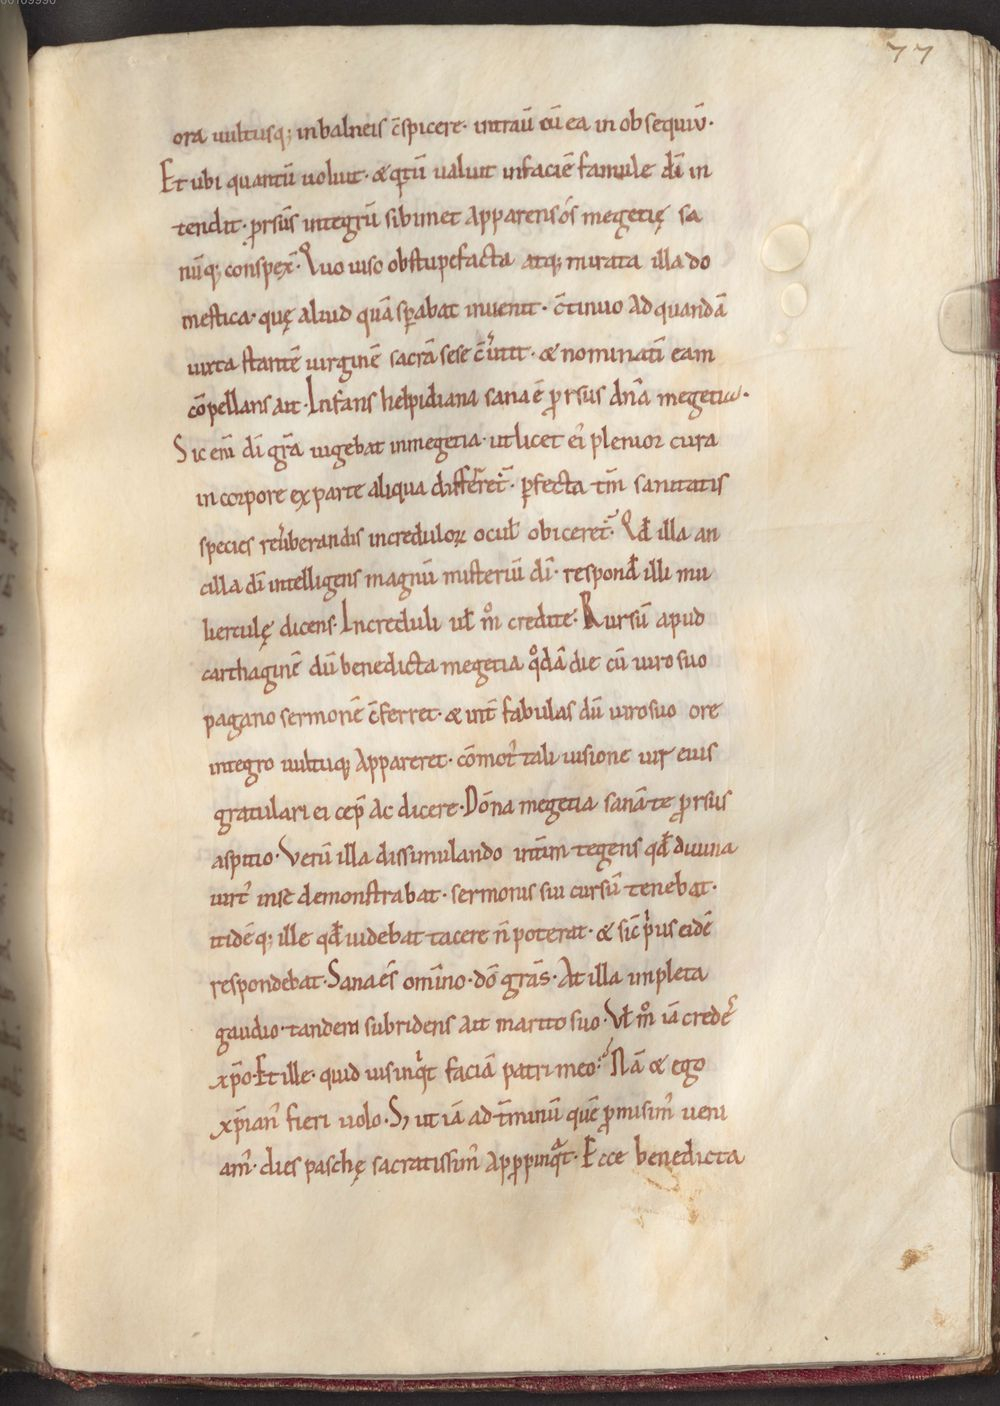 77
ora uultusq; inbalneis c̄spicere · intrauı̄ cū ea in obsequiū ·
Et ubi quantū uoluit · & q̄ntū ualuit infaciē famule dı̄ in
tendit · p̄rsūs integrū sibimet apparens ós megetię sa
nūq; conspex̄ · Quo uiso obstupefacta atq; mirata illa do
mestica · quę aliud quā sp̄abat inuenit · c̄tinuo ad quandā
iuxta stantē uirginē sacrā sese c̄u̓tit · & nominatı̄ eam
cō̄pellans ait · Infans helpidiana sana ē p̄rsus dn̄a megetia ·
Sic eni̅ dı̄ gr̄a uigebat inmegetia · ut licet ei̓ plenior cura
in corpore ex parte aliqua differ̄et̃ · p̄fecta tm̄ sanitatis
species reu̓berandis incredulorꝝ ocul̄ obiceret̃ · Qd̄ illa an
cilla dı̄ intelligens magnū misteriū dı̄ · respond̄ illi mu
lierculę dicens · Increduli ul̄ m̊ credite · Rursū apud
carthaginē dū benedicta megetia q̊dā die cū uiro suo
pagano sermonē c̄ferret · & int̄ fabulas dū uirosuo ore
integro uultuq; appareret · cōmot᷒ tali uisione uir eius
gratulari ei cep̄ ac dicere · Dōna megetia sanā te p̄rsus
aspitio · Verū illa dissimulando int̄im tegens qd̄ diuina
uirt᷒ inse demonstrabat · sermonis sui cursū tenebat ·
itidēq; ille qd̄ uidebat tacere n̄ poterat · & sic̄ p̓us eidē
respondebat · Sana es̄ omīno · dō grās · At illa impleta
gaudio · tandem subridens ait marito suo · Vl̄ m̊ iā creder̄
xp̄o · Et ille · quid uis inq̓t faciā patri meo · Nā & ego
xp̄ian᷒ fieri uolo · Sꝫ ut iā ad t̄minū quē p̄misim᷒ ueni
am᷒ · dies paschę sacratissim᷒ app̄pinq̄t · Ecce benedicta